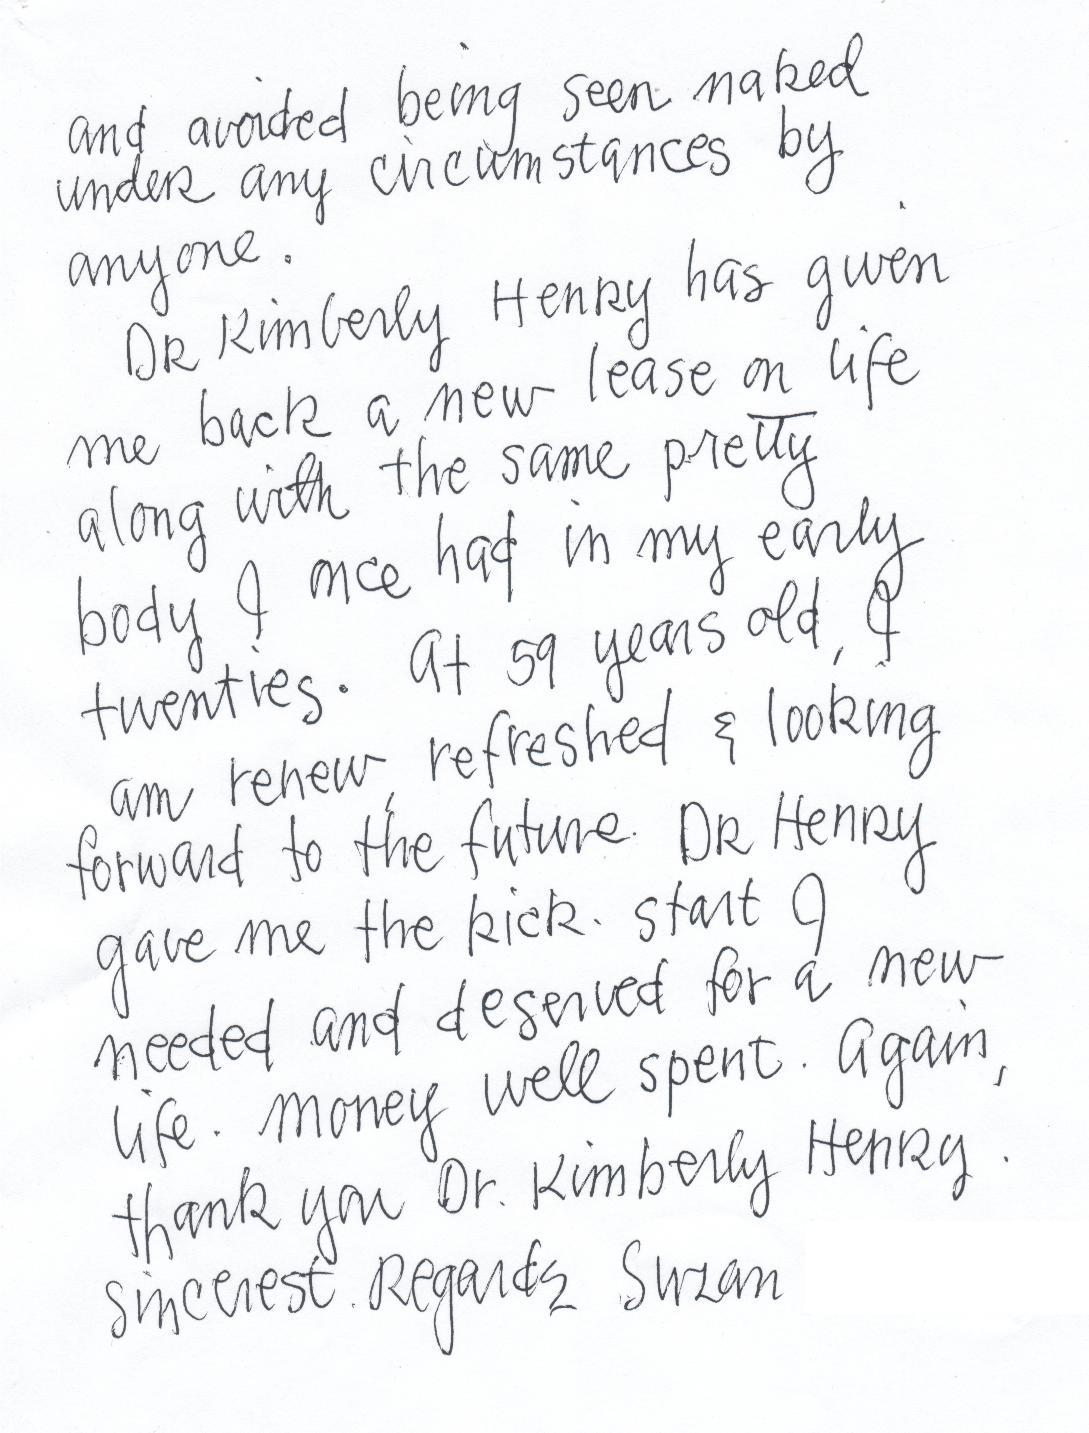 and avoided being seen naked
under any circumstances by
anyone.
DR Kimberly Henry has given
me back a new lease on life
along with the same pretty
body I once had in my early
twenties. At 59 years old, I
am renew, refreshed & looking
forward to the future. DR Henry
gave me the kick. start I
needed and deserved for a new
life. money well spent. Again,
thank you Dr. Kimberly Henry.
Sincerest. Regards Suzan